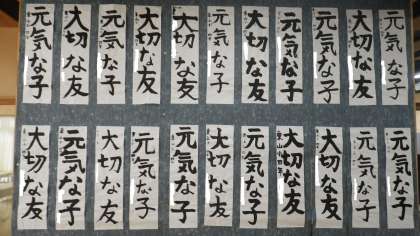 元気な子
大切な友
元気な子
元気な子
大切な友
元気な子
大切な友
大切な友
元気な子
大切な友
元気な子
元気な子
元気な子
大切な友
大切な友
元気な子
大切な友
元気な子
元気な子
大切な友
元気な子
大切な友